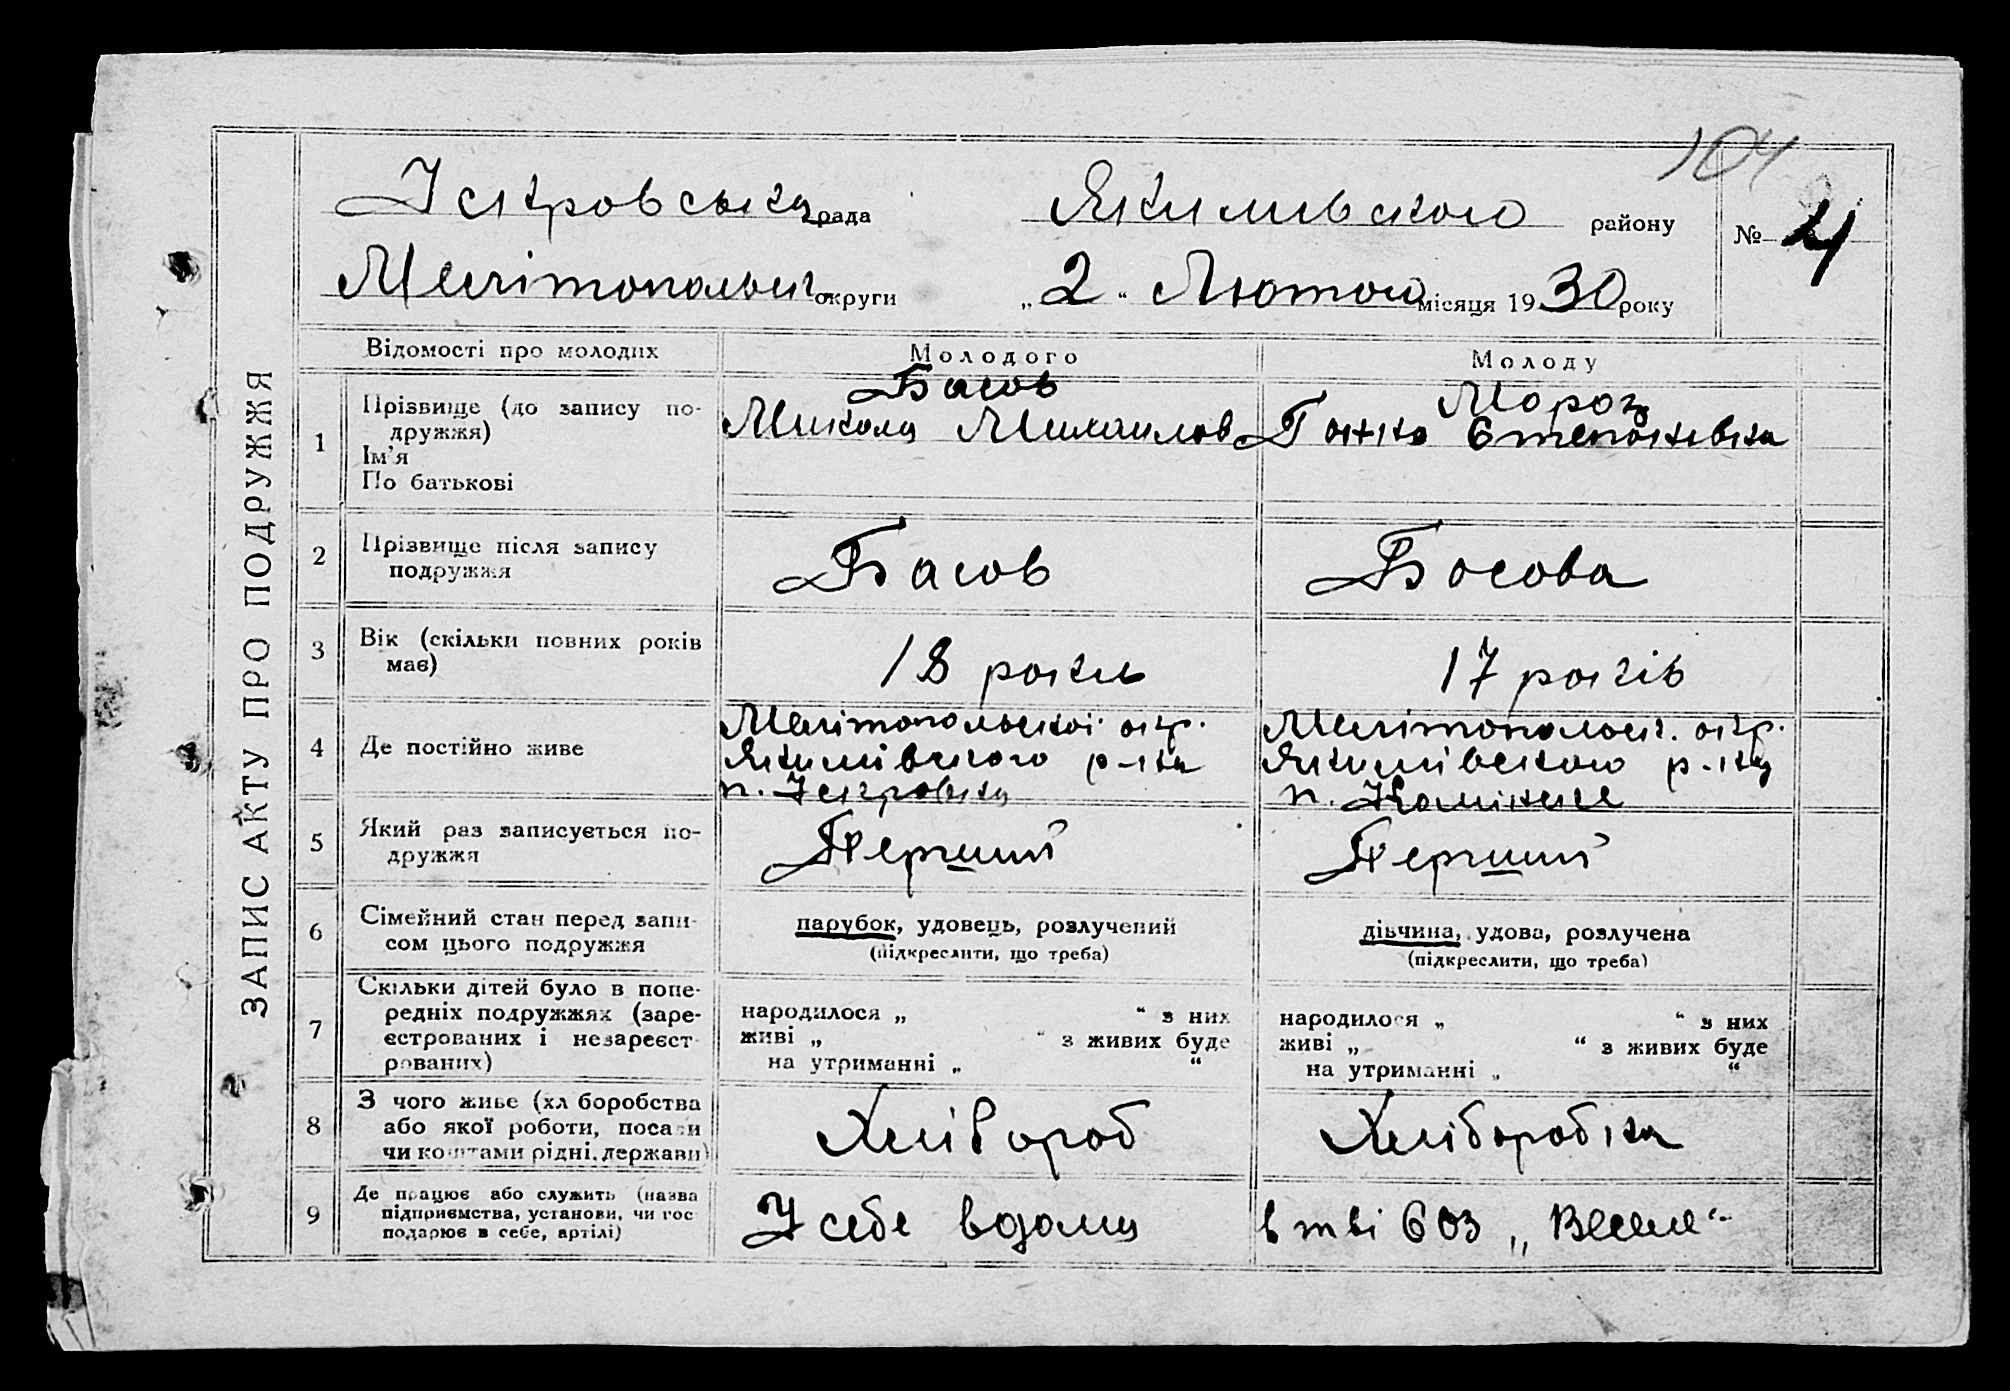 ЗАПИС АКТУ ПРО ПОДРУЖЖЯ
104
Іскровська рада Якимівського району № 4
Мелітопольськ. округи „ 2 “ Лютого місяця 1930 року
Відомості про молодих Молодого Молоду
1 Прізвище (до запису по-
дружжя)
Ім'я
По батькові
Басов
Микола Михаилов
Мороз
Ганна Степановна
2 Прізвище після запису
подружжя
Басов
Босова
3 Вік (скільки повних років
має)
18 роки
17 років
4 Де постійно живе
Мелітопольскої окр.
Якимівского р-на
п. Іскровка
Мелітопольск. окр.
Якимівского р-ну
п.
5 Який раз записується по-
дружжя
Перший
Перший
6 Сімейний стан перед запи-
сом цього подружжя
парубок, удовець, розлучений
(підкреслити, що треба)
дівчина, удова, розлучена
(підкреслити, що треба)
7 Скільки дітей було в попе-
редніх подружжях (заре-
єстрованих і незареєст-
рованих)
народилося „ “ з них
живі „ “ з живих буде
на утриманні „ “
народилося „ “ з них
живі „ “ з живих буде
на утриманні „ “
8 З чого живе (хл боробства
або якої роботи, посади
чи коштами рідні, держави)
Хлібороб
Хліборобка
9 Де працює або служить (назва
підприємства, установи, чи гос
подарює в себе, артілі)
У себе вдома
в т-ві СОЗ „Веселе“